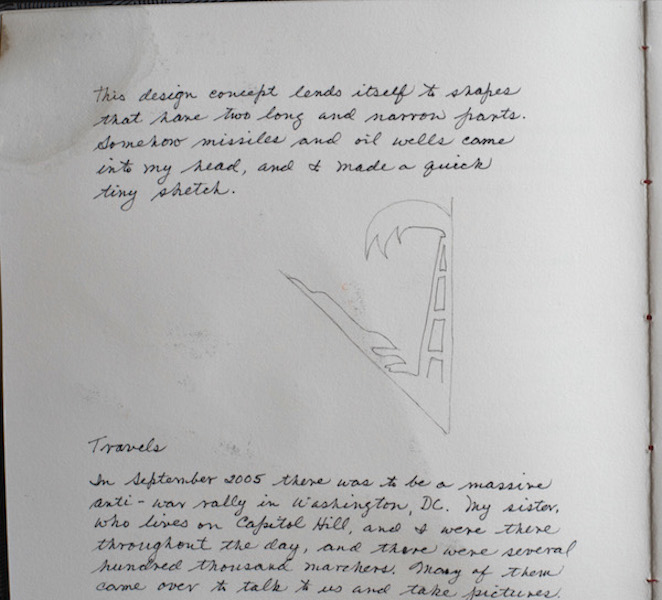 This design concept lends itself to shapes
that have two long and narrow parts.
Somehow missiles and oil wells came
into my head, and I made a quick
tiny sketch.
Travels
In September 2005 there was to be a massive
anti-war rally in Washington, DC. My sister,
who lives on Capitol Hill, and I were there
throughout the day, and there were several
hundred thousand marchers. Many of them
came over to talk to us and take pictures.